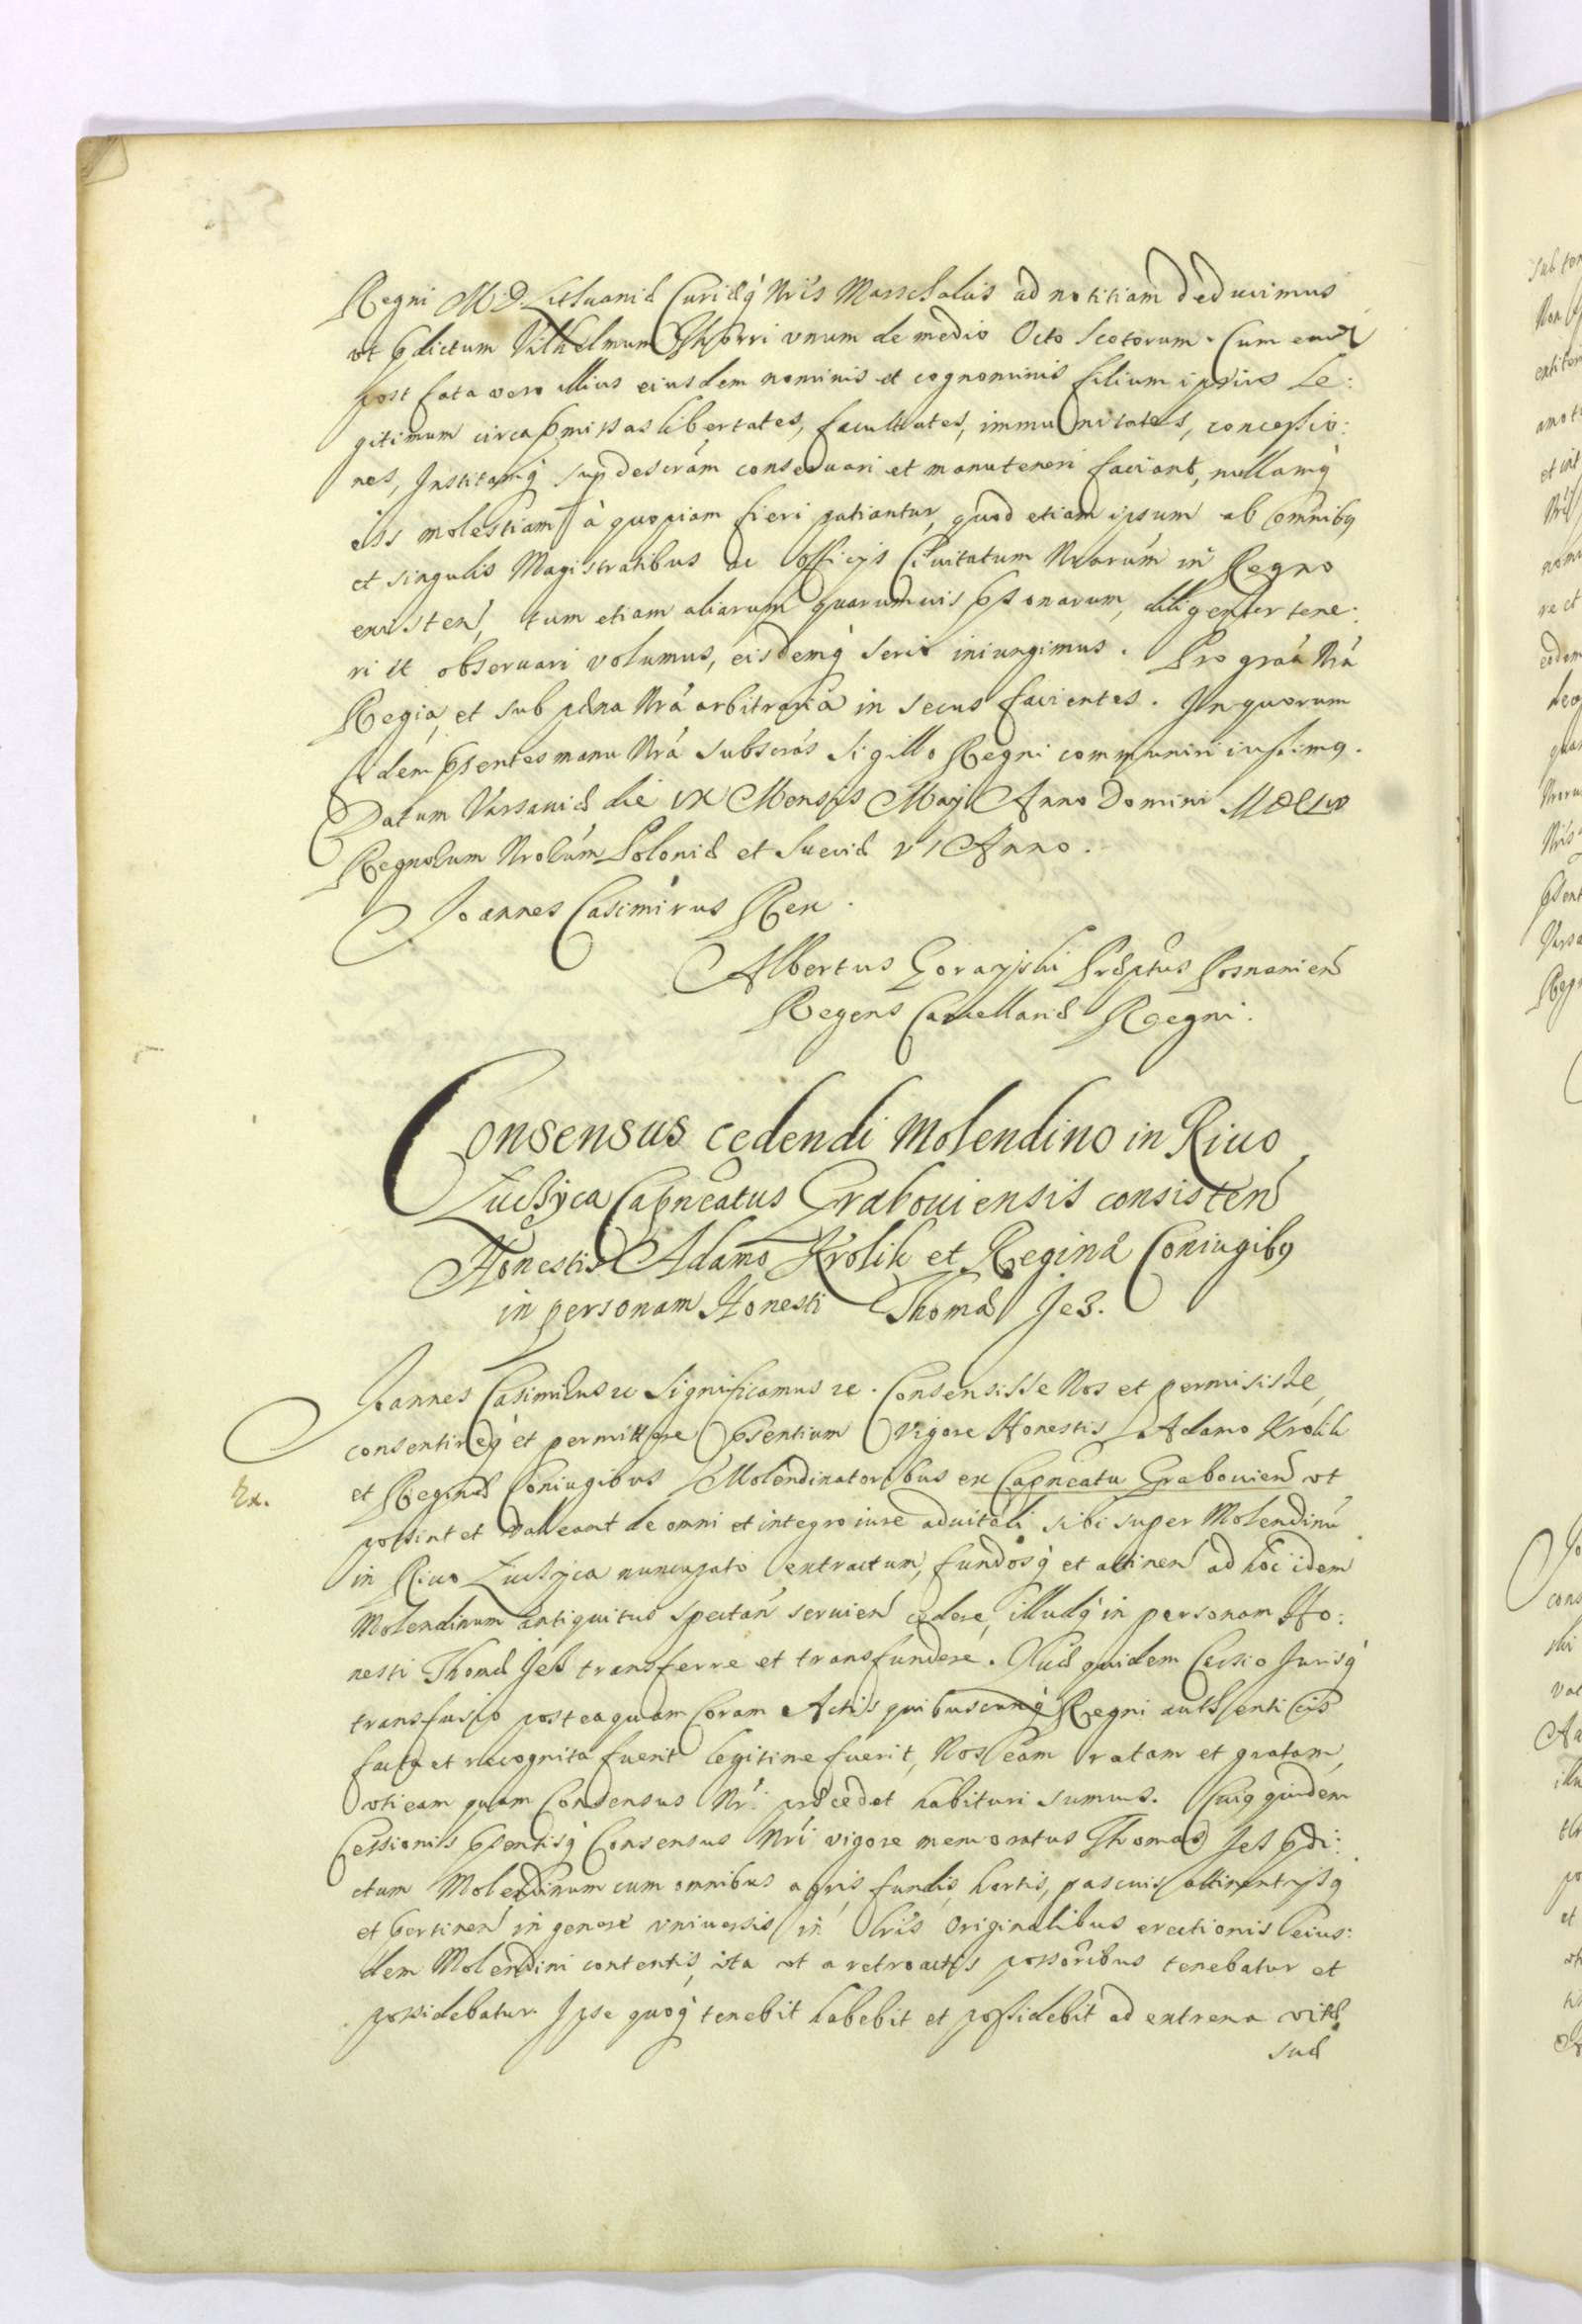 Regni M. D. Lithuaniæ Curiæq́ Nr̃is Marschalis ad notitiam deducimus
vt p̱dictum Vilhelmum Thorri vnum de medio Octo Scotorum. Cum
post fata vero illius eiusdem nominis et cognominis filium ipsius Le:
gitimum circa p̱missas libertates, facultates, immunitates, concessio:
nes, Institamq́ sup̱descrãm conseruari et manuteneri faciant, nullamq́
eis molestiam à quopiam fieri patiantur, quod etiam ipsum ab omnibꝯ
et singulis Magistratibus ac officijs Ciuitatum Nr̃arum in Regno
existeñ, tum etiam aliarum quarumuis p̱sonarum, diligenter tene:
ri et obseruari volumus, eisdemq́ serio iniungimus. Pro gr̃aa Nr̃a
Regia, et sub pæna Nr̃a arbitraria in secus facientes. In quorum
fidem p̱sentes manu Nr̃a subscr̃as Sigillo Regni communiri iussimꝯ.
Datum Varsauiæ die IX Mensis Maij Anno Domini
Regnorum Nr̃orum Poloniæ et Sueciæ VI Anno.
Joannes Casimirus Rex.
Albertus Gorayski Præptus Posnanieñ
Regens Cancellariæ Regni.
Consensus cedendi Molendino in Riuo
Zuchyca Capñeatus Grabouiensis consisteñ
Honestis Adamo Krolik et Reginæ Coniugibꝯ
in personam Honesti Thomæ Jes.
Joannes Casimirus etc Significamus etc. Consensisse Nos et permisisse,
consentireq́ et permittere p̱sentium vigore Honestis Adamo Krolik
et Reginæ Coniugibus Molendinatoribus ex Capñeatu Grabouieñ vt
Ex.
possint et valeant de omni et integro iure aduitali sibi super Molendinũ
in Riuo Zuchyca nuncupato extructum, fundosq́ et attineñ ad hoc idem
Molendinum antiquitus spectañ seruieñ cedere, illudq́ in personam Ho:
nesti Thomæ Jes transferre et transfundere. Quæ quidem Cessio Jurisq́
transfusio posteaquam Coram Actis quibuscunq́ Regni authenticis
facta et recognita fuerit legitime fuerit, Nos eam ratam et gratam,
vti eam quam Consensus Nr̃i præcedet habituri sumus. Cuiꝯ quidem
Cessionis p̱sentisq́ Consensus Nr̃i vigore memoratus Thomas Jes p̱di:
ctum Molendinum cum omnibus agris, fundis, hortis, pascuis attinentijsq́
et pertineñ in genere vniuersis in Lr̃is Originalibus erectionis eius:
dem Molendini contentis, ita vt a retroactis possoribus tenebatur et
possidebatur. Ipse quoq́ tenebit habebit et possidebit ad extrema vitæ
suæ